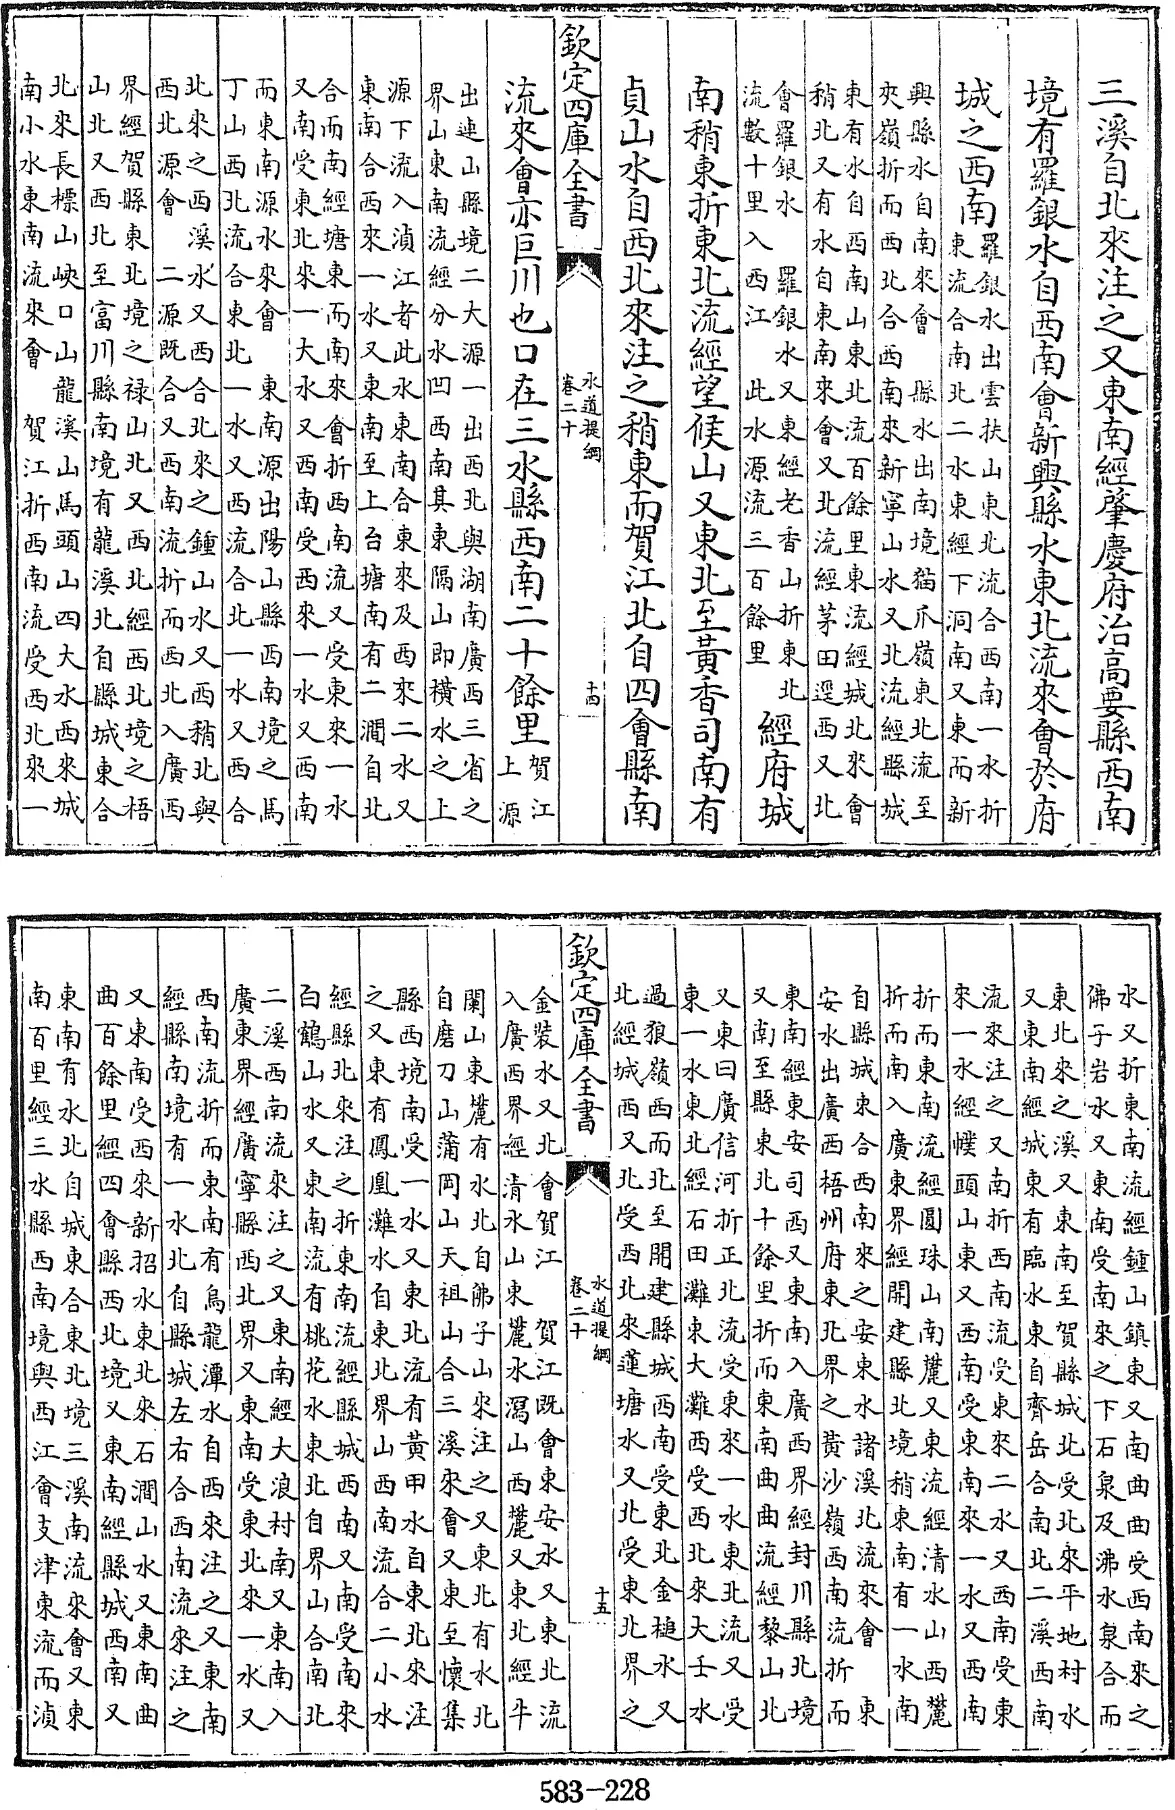 三溪自北來注之又東南經肇慶府治高要縣西南
境有羅銀水自西南會新興縣水東北流來會於府
城之西南
羅銀水出雲扶山東北流合西南一水折
東流合南北二水東經下洞南又東而新
興縣水自南來會 縣水出南境猫爪嶺東北流至
夾嶺折而西北合西南來新寧山水又北流經縣城
東有水自西南山東北流百餘里東流經城北來會
稍北又有水自東南來會又北流經茅田逕西又北
會羅銀水 羅銀水又東經老香山折東北
流數十里入西江 此水源流三百餘里
經府城
南稍東折東北流經望候山又東北至黃香司南有
貞山水自西北來注之稍東而賀江北自四會縣南
欽定四庫全書
水道提綱
卷二十
十四
流來會亦巨川也口在三水縣西南二十餘里
賀江
上源
出連山縣境二大源一出西北與湖南廣西三省之
界山東南流經分水凹西南其東隔山即橫水之上
源下流入湞江者此水東南合東來及西來二水又
東南合西來一水又東南至上台塘南有二澗自北
合而南經塘東而南來會折西南流又受東來一水
又南受東北來一大水又西南受西來一水又西南
而東南源水來會 東南源出陽山縣西南境之馬
丁山西北流合東北一水又西流合北一水又西合
北來之西溪水又西合北來之鍾山水又西稍北與
西北源會 二源既合又西南流折而西北入廣西
界經賀縣東北境之禄山北又西北經西北境之梧
山北又西北至富川縣南境有龍溪北自縣城東合
北來長標山峽口山龍溪山馬頭山四大水西來城
南小水東南流來會 賀江折西南流受西北來一
水又折東南流經鍾山鎮東又南曲曲受西南來之
佛子岩水又東南受南來之下石泉及沸水泉合而
東北來之溪又東南至賀縣城北受北來平地村水
又東南經城東有臨水東自齊岳合南北二溪西南
流來注之又南折西南流受東來二水又西南受東
來一水經幞頭山東又西南受東南來一水又西南
折而東南流經圓珠山南麓又東流經清水山西麓
折而南入廣東界經開建縣北境稍東南有一水南
自縣城東合西南來之安東水諸溪北流來會 東
安水出廣西梧州府東北界之黃沙嶺西南流折而
東南經東安司西又東南入廣西界經封川縣北境
又南至縣東北十餘里折而東南曲曲流經黎山北
又東曰廣信河折正北流受東來一水東北流又受
東一水東北經石田灘東大灘西受西北來大壬水
過狼嶺西而北至開建縣城西南受東北金槌水又
北經城西又北受西北來蓮塘水又北受東北界之
欽定四庫全書
水道提綱
卷二十
十五
金裝水又北會賀江 賀江既會東安水又東北流
入廣西界經清水山東麓水瀉山西麓又東北經牛
闌山東麓有水北自佛子山來注之又東北有水北
自磨刀山蒲岡山天祖山合三溪來會又東至懷集
縣西境南受一水又東北流有黃甲水自東北來注
之又東有鳳凰灘水自東北界山西南流合二小水
經縣北來注之折東南流經縣城西南又南受南來
白鶴山水又東南流有桃花水東北自界山合南北
二溪西南流來注之又東南經大浪村南又東南入
廣東界經廣寧縣西北界又東南受東北來一水又
西南流折而東南有烏龍潭水自西來注之又東南
經縣南境有一水北自縣城左右合西南流來注之
又東南受西來新招水東北來石澗山水又東南曲
曲百餘里經四會縣西北境又東南經縣城西南又
東南有水北自城東合東北境三溪南流來會又東
南百里經三水縣西南境與西江會支津東流而湞
583-228